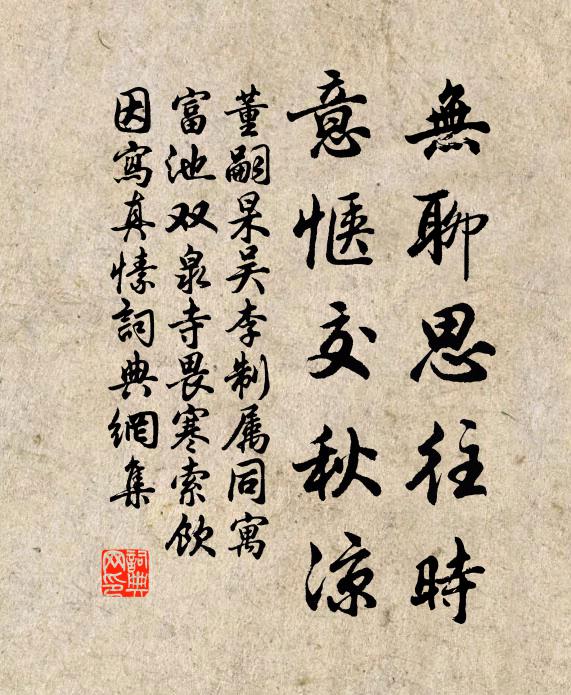 無聊思往時
意愜交秋涼
董嗣杲吴李制属同寓
富池双泉寺畏寒索饮
因寫真愫詞典網集
詞典网印